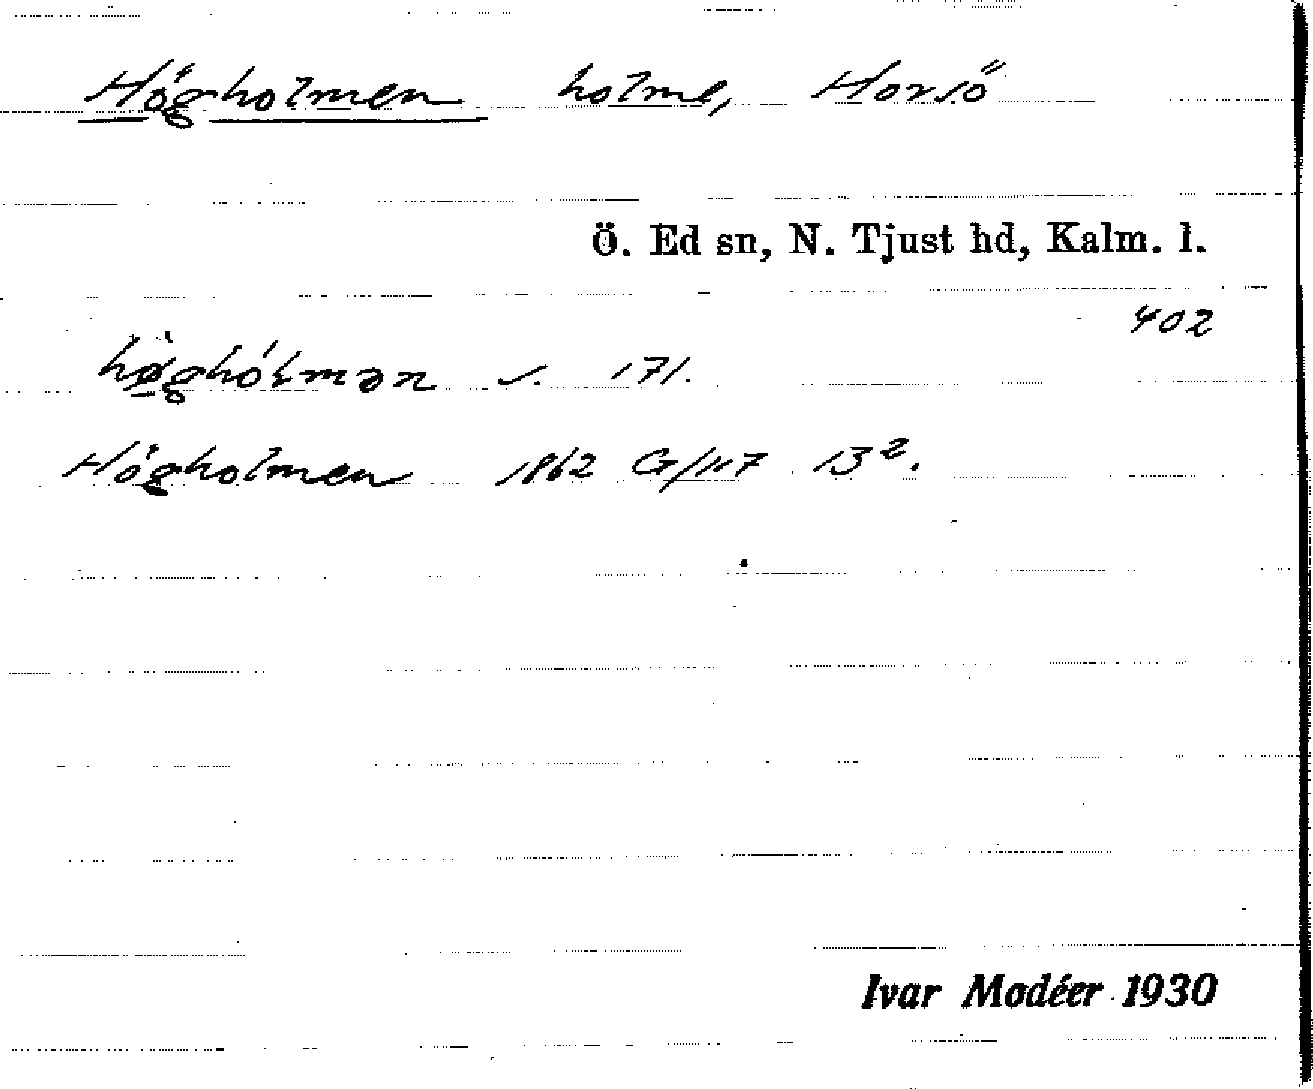 Högholmen holme, Horsö
Ö. Ed sn, N. Tjust hd, Kalm. l.
402
s. 171.
Högholmen 1862 G/117 13².
Ivar Modéer 1930